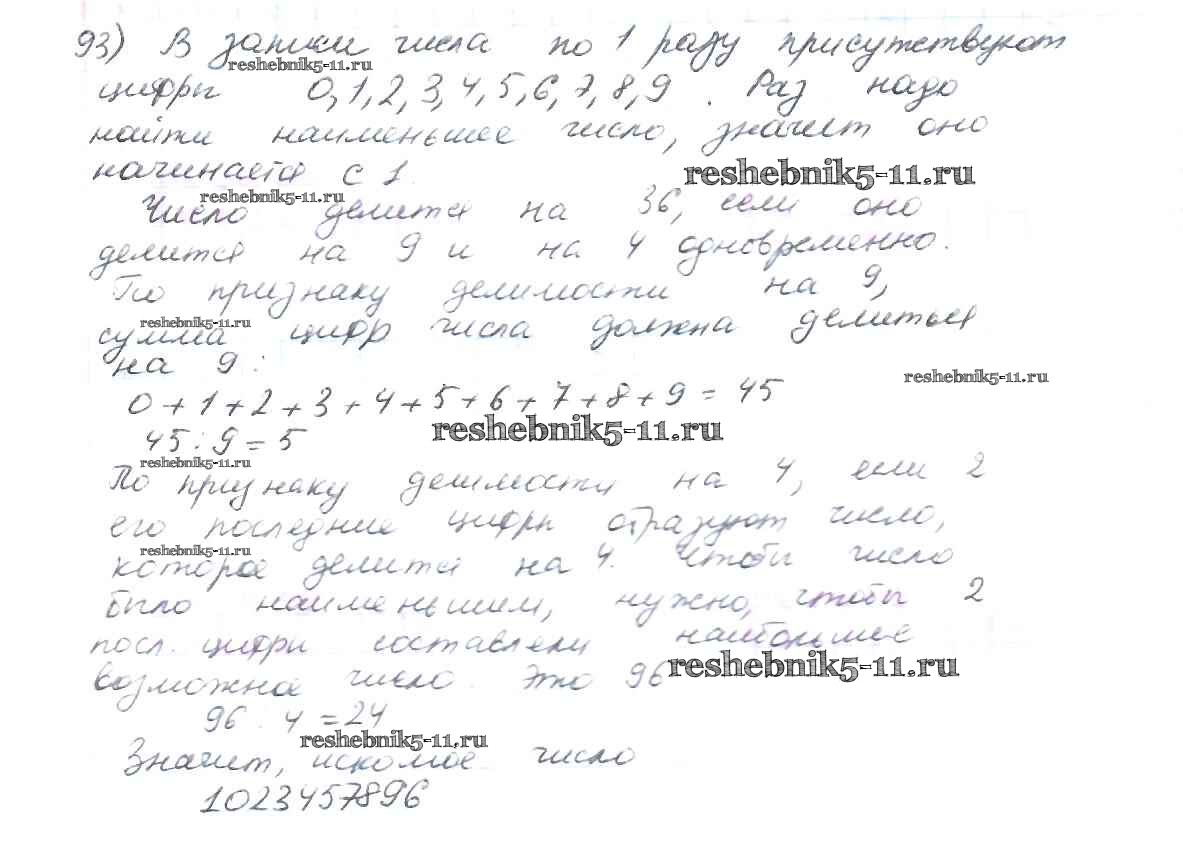 93) В записи числа по 1 разу присутствуют
reshebnik5-11.ru
цифры 0,1,2,3,4,5,6,7,8,9. Раз надо
найти наименьшее число, значит оно
начинается с 1.
reshebnik5-11.ru
reshebnik5-11.ru
Число делится на 36, если оно
делится на 9 и на 4 одновременно.
По признаку делимости на 9,
reshebnik5-11.ru
сумма цифр числа должна делиться
на 9:
reshebnik5-11.ru
0+1+2+3+4+5+6+7+8+9=45
reshebnik5-11.ru
45:9=5
reshebnik5-11.ru
По признаку делимости на 4, если 2
его последние цифры образуют число,
reshebnik5-11.ru
которое делится на 4. Чтобы число
было наименьшим, нужно, чтобы 2
посл. цифры составляли наибольшее
возможное число. Это 96
reshebnik5-11.ru
96:4=24
reshebnik5-11.ru
Значит, искомое число
1023457896